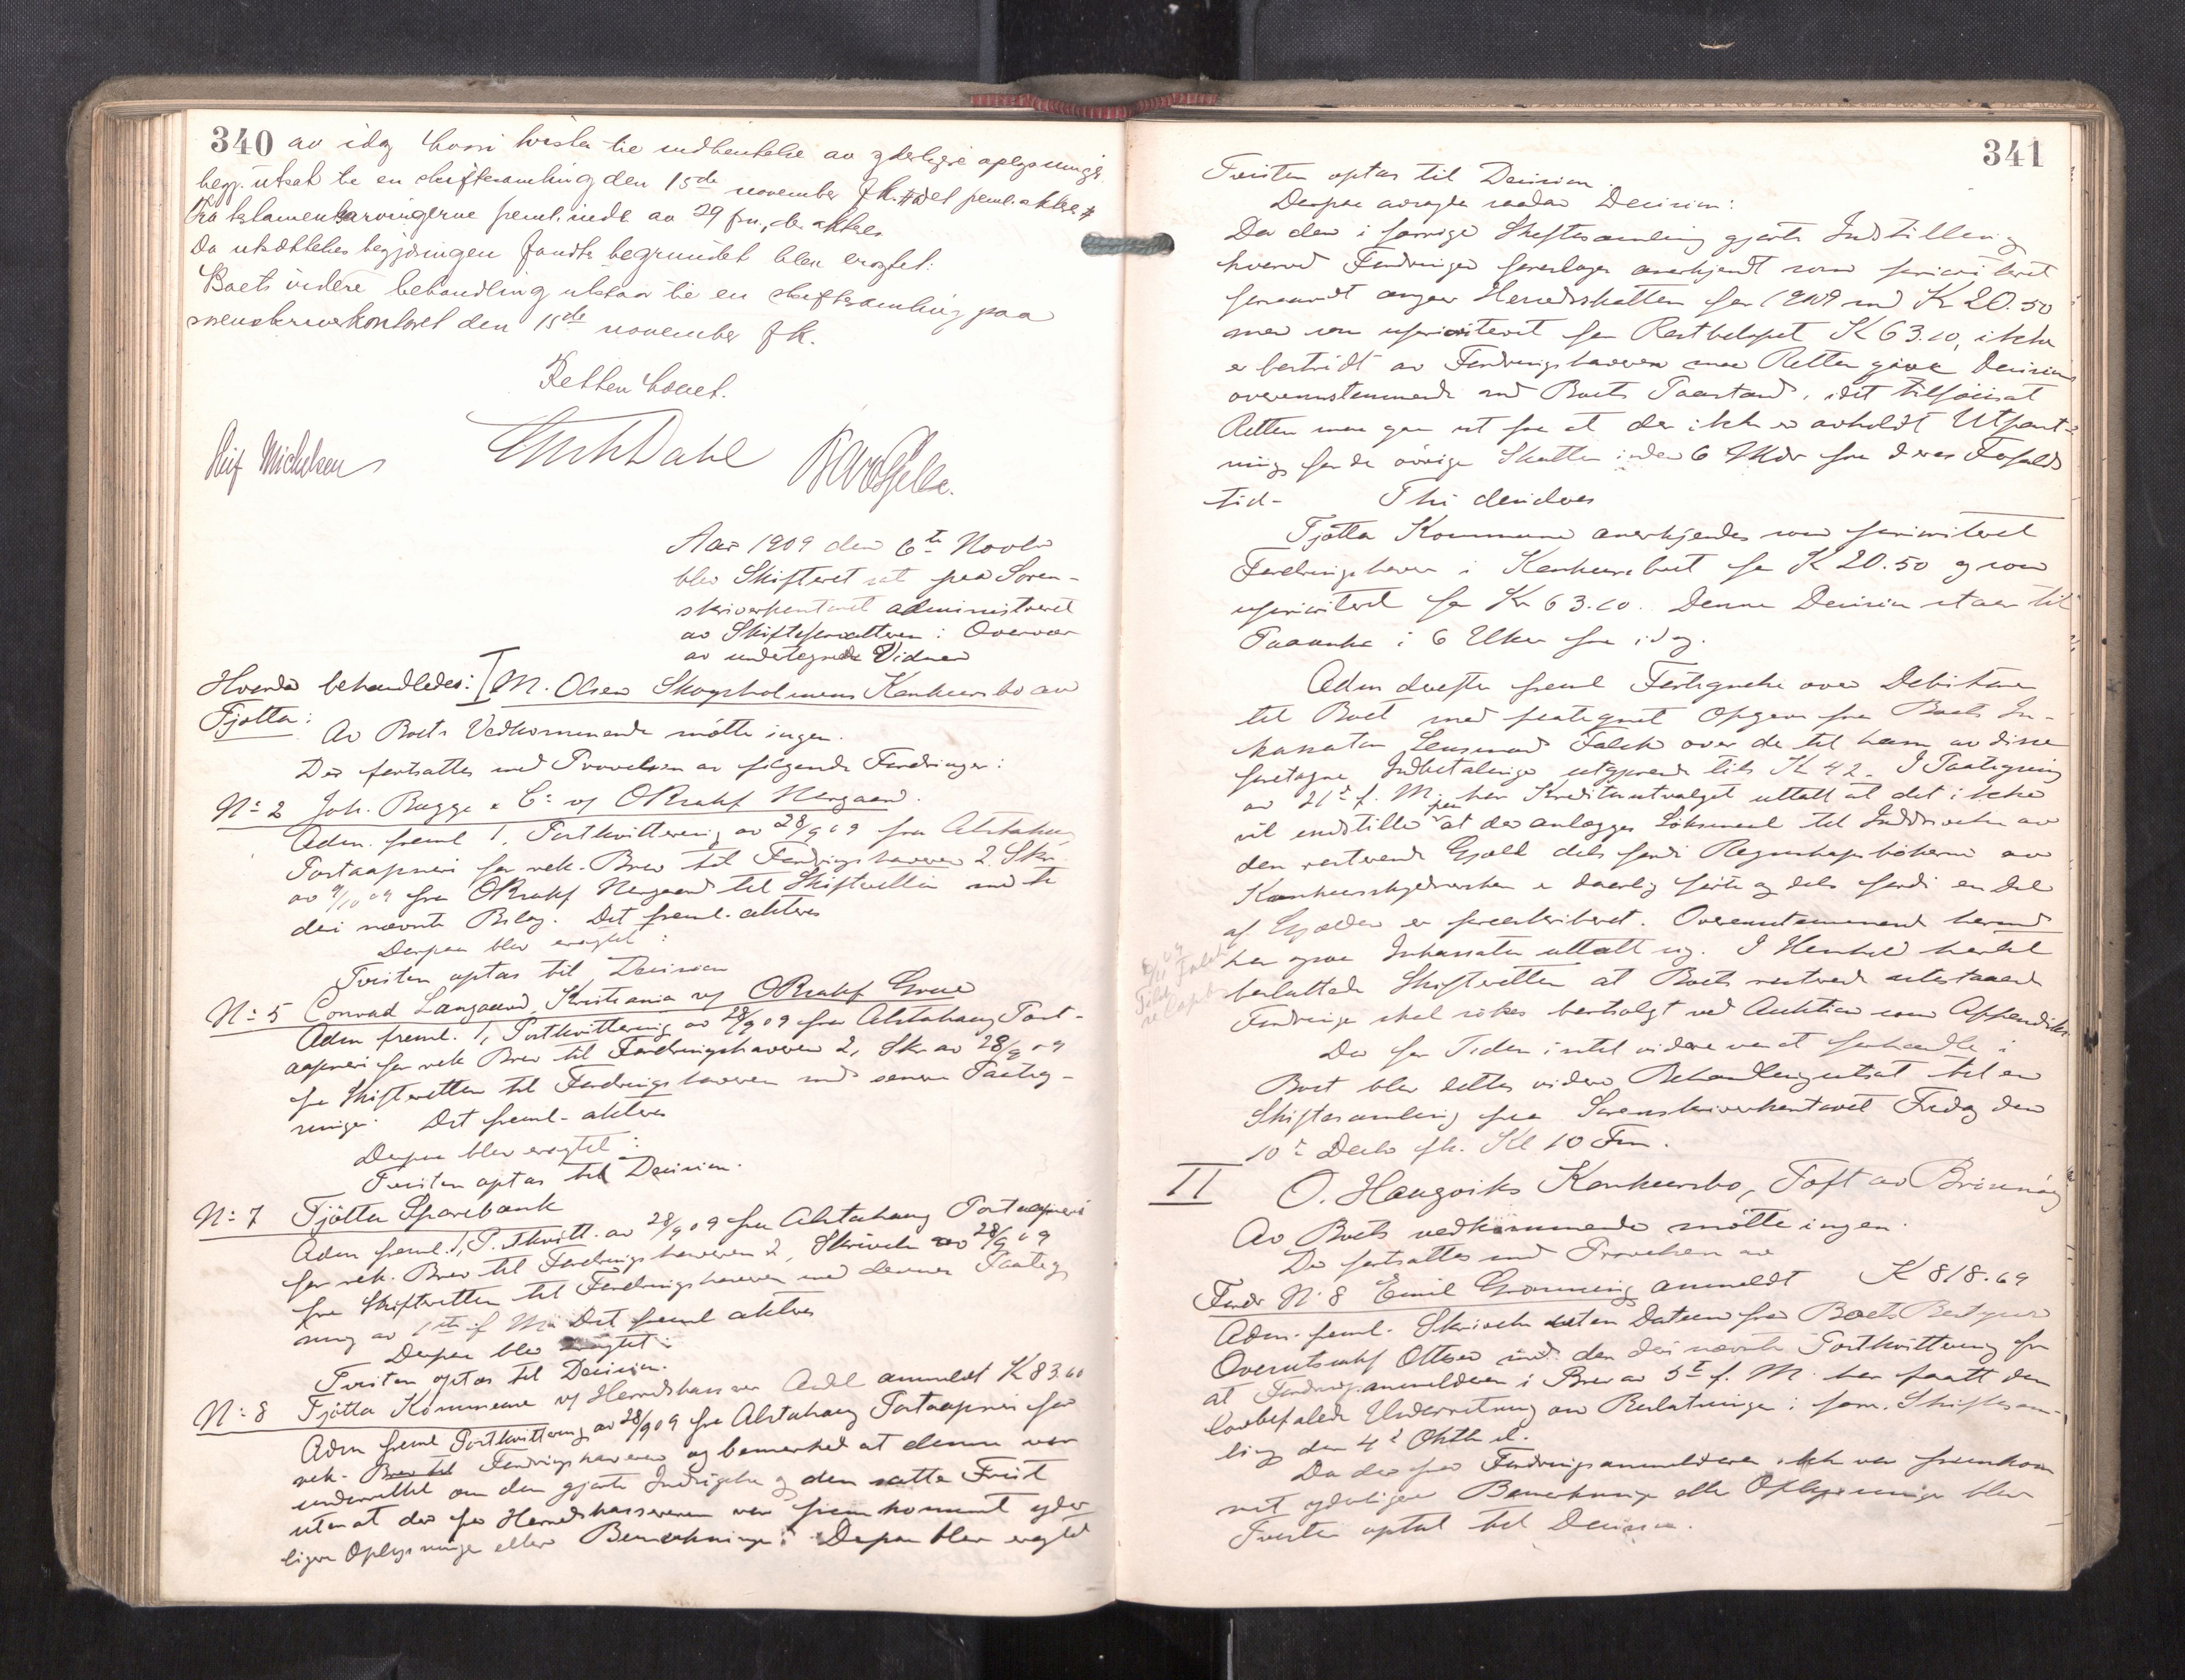 340 av idag hvori loves til indhentelse av yderligere oplysninger
begj. utsat til en skiftesamling den 15de november f.k. # det freml. aktes #
Fra testamentsarvingerne freml. indl av 29 fm, der aktes
Da utsættelsesbegjæringen fandtes begrundet blev eragtet:
Boets videre behandling utstaar til en skiftesamling paa
sorenskriverkontoret den 15de november f.k.
Retten hævet.
Leif Michelsen
Dahl
Aar 1909 den 6te Novbr
blev Skifteret sat paa Soren-
skriverkontoret administreret
av Skifteforvalteren i Overvær
av undertegnede Vidner
Hvorda behandledes: I M. Olsen Skogsholmens Konkursbo av
Tjøtta:
Av Boets Vedkommende møtte ingen.
Der fortsattes med Prøvelsen av følgende Fordringer:
No 2 Joh. Bugge & Co v/ ORsakf Nergaard.
Adm. freml 1. Postkvittering av 28/9 09 fra Alstahaug
Postaapneri for rek. Brev til Fordringshaveren 2. Skr.
av 9/10 09 fra ORsakf Nergaard til Skifteretten med de
deri nævnte Bilag. Det freml. aktes
Derpaa blev eragtet:
Tvisten optas til Decision
No 5 Conrad Langaard, Kristiania v/ ORsakf Grove
Adm freml. 1, Postkvittering av 28/9 09 fra Alstahaug Post-
aapneri for rek Brev til Fordringshaveren 2, Skr av 28/9 09
fra Skifteretten til Fordringshaveren med dennes Paateg-
ninger. Det freml. aktes
Derpaa blev eragtet:
Tvisten optas til Decision.
No 7 Tjøtta Sparebank
Adm freml. 1, P.tkvitt. av 28/9 09 fra Alstahaug Postaapneri
for rek. Brev til Fordringshaveren 2, Skrivelse av 28/9 09
fra Skifteretten til Fordringshaveren med dennes Paateg-
ning av 1ste f M. Det freml aktes
Derpaa blev eragtet:
Tvisten optas til Decision.
No 8 Tjøtta Kommune v/ Herredskasserer anmeldt K 83.60
Adm freml Postkvittering av 28/9 09 fra Alstahaug Postaapneri for
rek. Brev til Fordringshaveren og bemerket at denne var
underrettet om den gjorte Indsigelse og den satte Frist
uten at der fra Herredskassereren var fremkommet yder-
ligere Oplysninger eller Bemerkninger. Derpaa blev eragtet
341
Tvisten optas til Decision.
Derpaa avsagdes saadan Decision:
Da den i forrige Skiftesamling gjorte Indstilling
hvorved Fordringen foreslaaes anerkjendt som privilitert
forsaavidt angaar Herredsskatten for 1909 med Kr 20.50
men som uprivilitert for Restbeløpet K 63.10, ikke
er bestridt av Fordringshaveren maa Retten give Decision
overensstemmende med Boets Paastand, idet tilføies at
Retten maa gaa ut fra at der ikke er avholdt Utpant-
ning for de øvrige Skatter inden 6 Mdr fra deres Forfalds
tid- Thi decideres
Tjøtta Kommune anerkjendes som privilitert
Fordringshaver i Konkursboet for K 20.50 og som
uprivilitert for Kr 63.10. Denne Decision staar til
Paaanke i 6 Uker fra idag.
Adm derefter freml Fortegnelse over Debitorer
til Boet med paategnet Opgave fra Boets In-
kassator Lensmand Falch over de til ham av disse
foretagne Indbetalinger utgjørende tils K 42. I Paategning
av 21de f. M. har Kreditorutvalget uttalt at det ikke
vil indstille paa at der anlægges Søksmaal til Inddrivelse av
den resterende Gjæld dels fordi Regnskapsbøkerne av
Konkursskyldneren er daarlig førte og dels fordi en Del
af Gjælden er foreldet. Overensstemmende hermed
har ogsaa Inkassator uttalt sig. I Henhold hertil
besluttede Skifteretten at Boets resterende utestaaende
Fordringer skal søkes bortsolgt ved Auktion som
Da for Tiden intet videre var at forhandle i
Boet blev dettes videre Behandling utsat til en
Skiftesamling paa Sorenskriverkontoret Fredag den
10de Decbr f.k. Kl 10 Fm.
II O. Haugviks Konkursbo, Toft av Brønnøy
Av Boets vedkommende møtte ingen.
Der fortsattes med Prøvelsen av
Fordr No 8 Emil Grønning anmeldt K 818.69
Adm. freml. Skrivelse uten Datum fra Boets Bestyrer
Overretssakf Ottesen med den deri nævnte Postkvittering for
at Fordringsanmelderen i Brev av 5te f. M. har faatt den
lovbefalede Underretning om Beslutningen i forr. Skiftesam-
ling den 4de Oktbr d.
Da der fra Fordringsanmelderen ikke var fremkom-
met yderligere Bemerkninger eller Oplysninger blev
Tvisten optat til Decision.